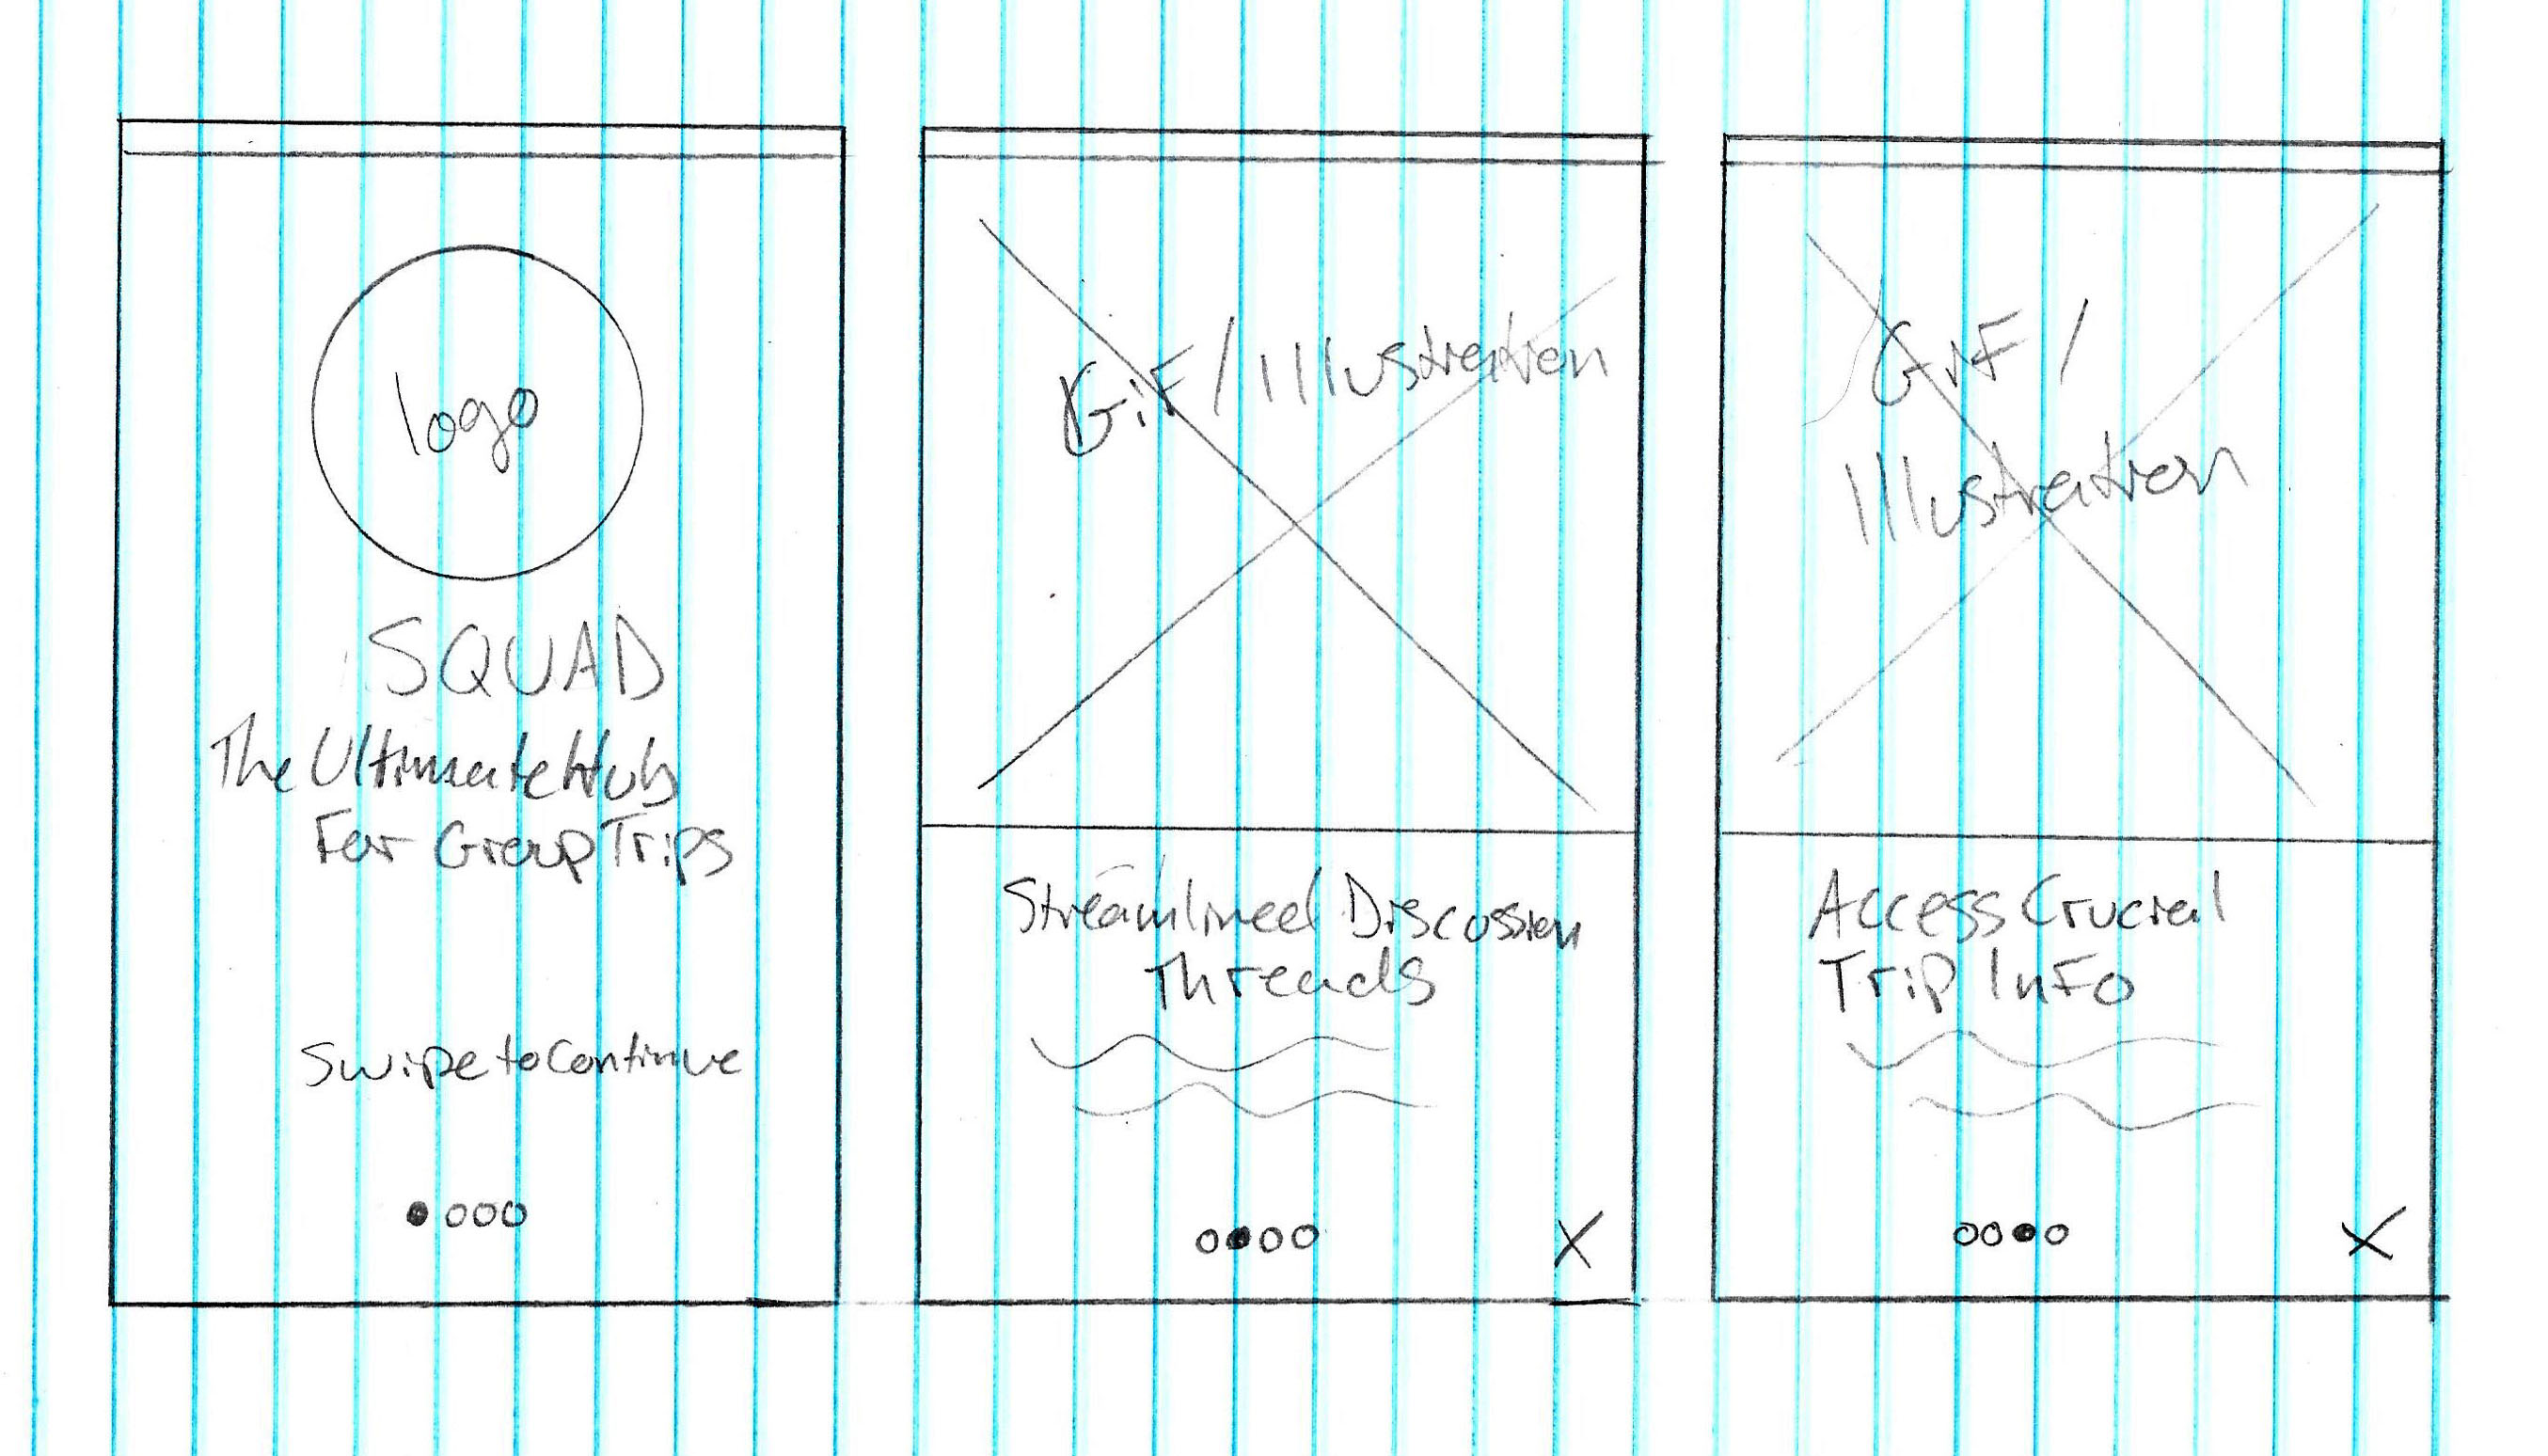 logo
SQUAD
The Ultimate Hub
For Group Trips
Swipe to Continue
GiF / Illustration
Streamlined Discussion
Threads
GiF /
Illustration
Access Crucial
Trip Info